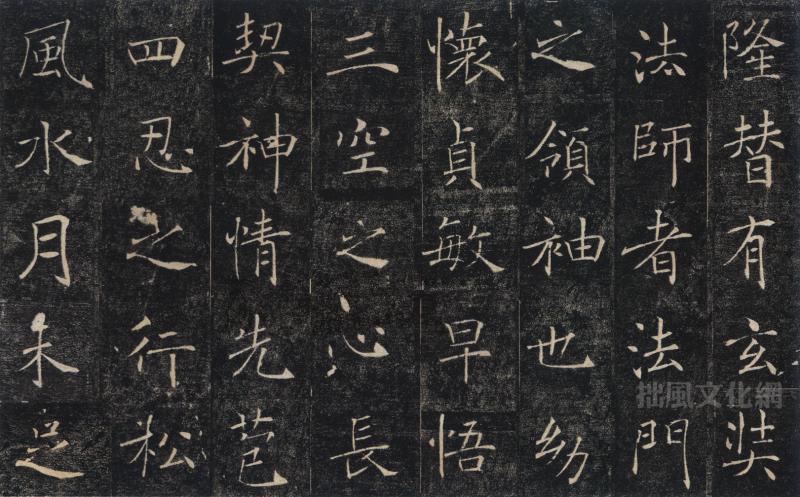 隆替有玄奘
法師者法門
之領袖也幼
懷貞敏早悟
三空之心長
契神情先苞
四忍之行松
風水月未足
拙風文化網